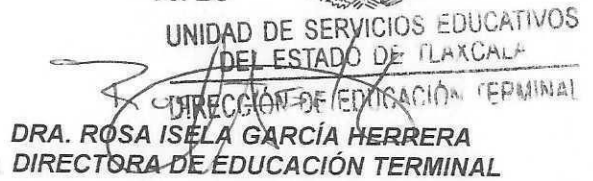 UNIDAD DE SERVICIOS EDUCATIVOS
DEL ESTADO DE TLAXCALA
DIRECCIÓN DE EDUCACIÓN TERMINAL
DRA. ROSA ISELA GARCÍA HERRERA
DIRECTORA DE EDUCACIÓN TERMINAL